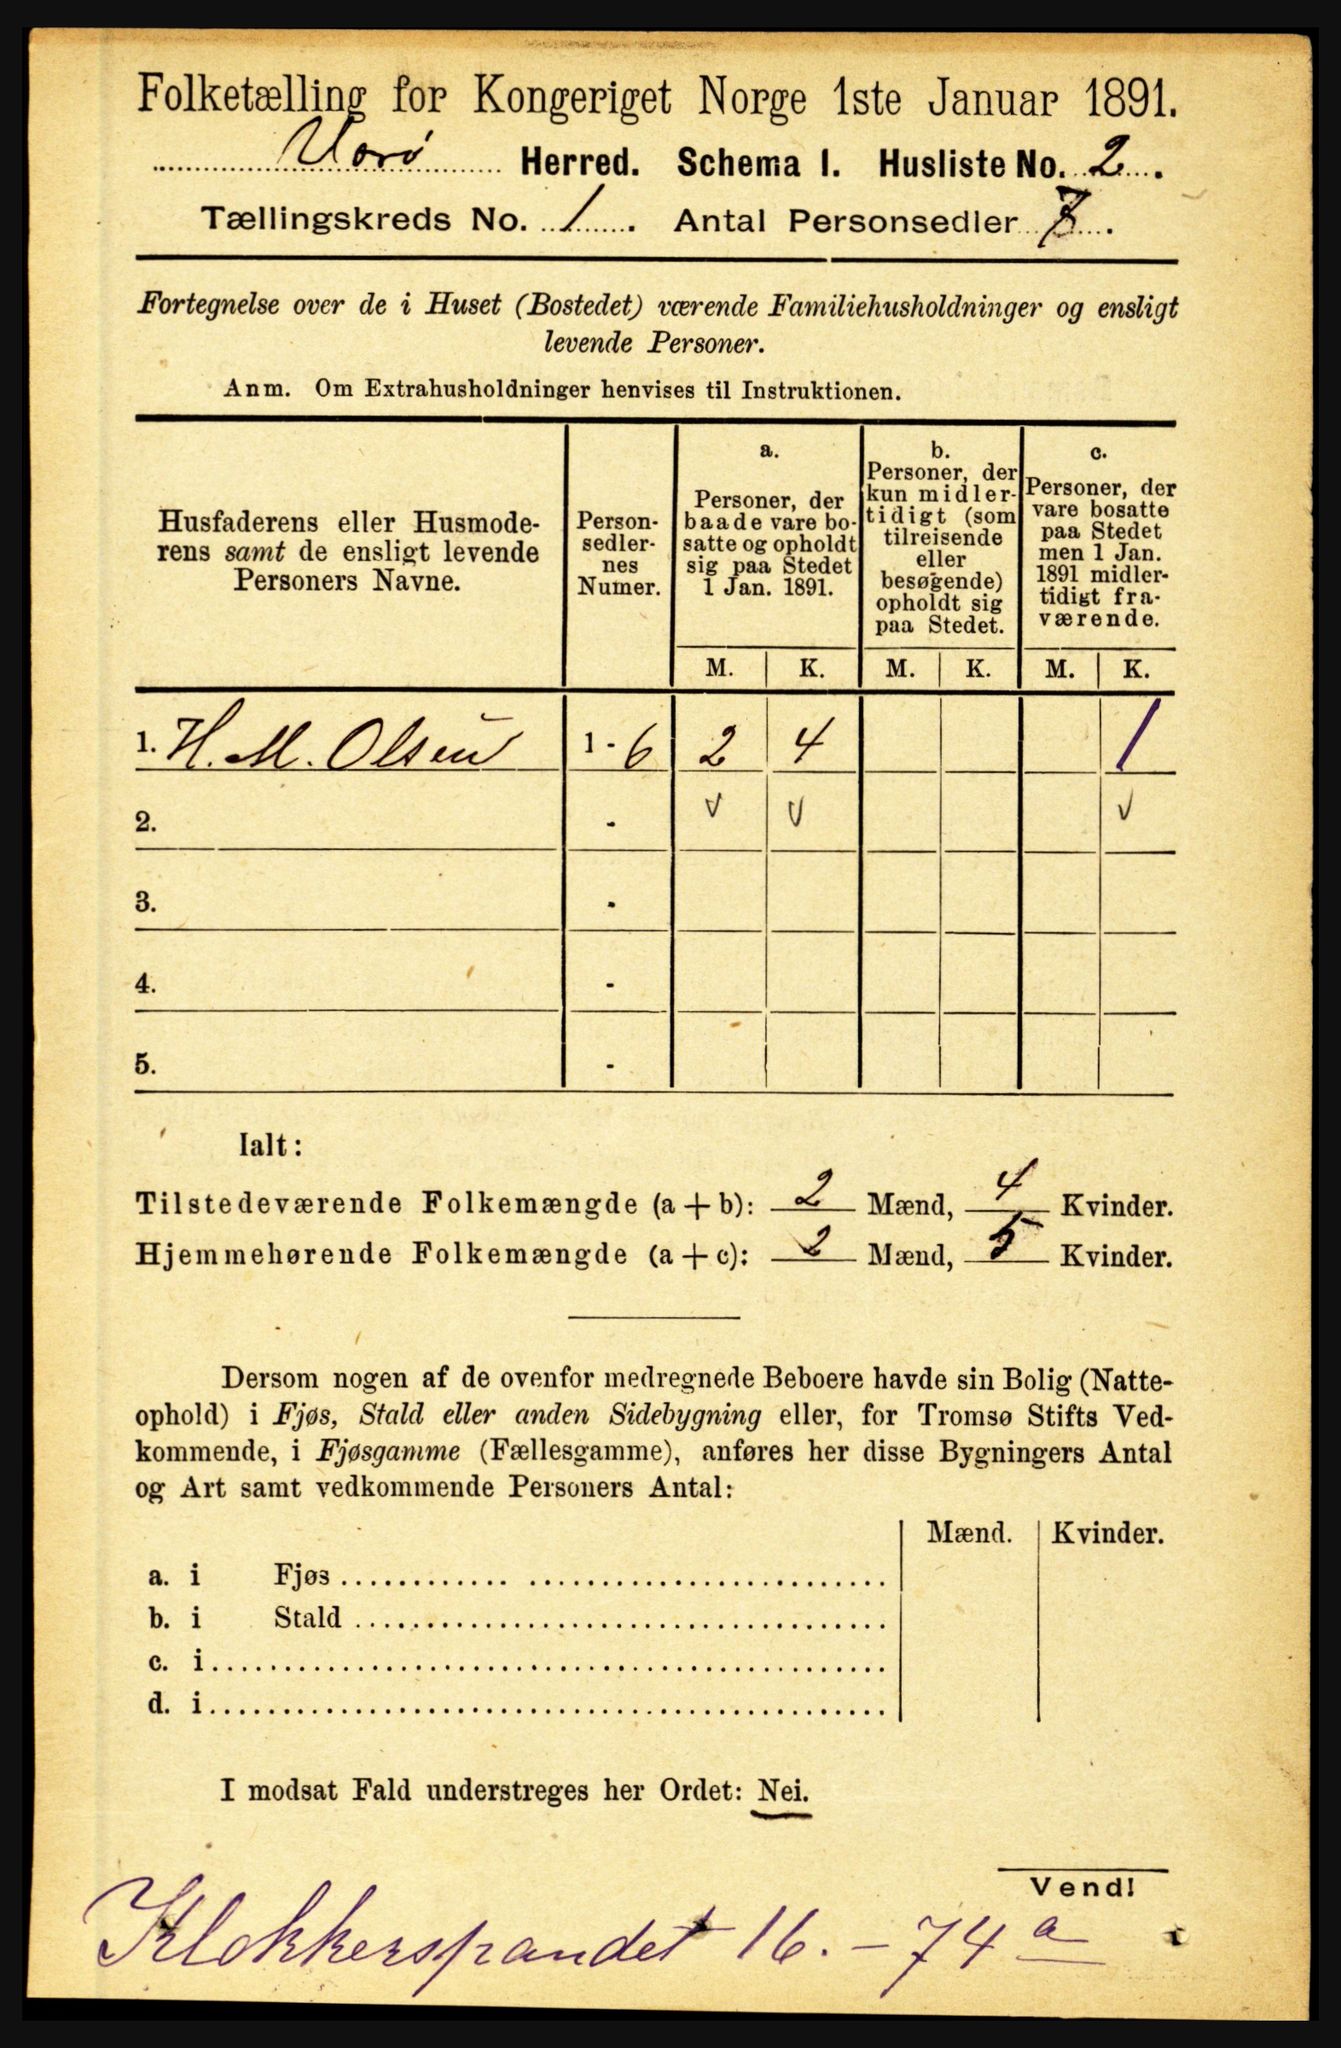 Folketælling for Kongeriget Norge 1ste Januar 1891.
Værø Herred. Schema I. Husliste No. 2.
Tællingskreds No. 1. Antal Personsedler 7.
Fortegnelse over de i Huset (Bostedet) værende Familiehusholdninger og ensligt
levende Personer.
Anm. Om Extrahusholdninger henvises til Instruktionen.
Husfaderens eller Husmode-
rens samt de ensligt levende
Personers Navne.
Person-
sedler-
nes
Numer.
a.
Personer, der
baade vare bo-
satte og opholdt
sig paa Stedet
1 Jan. 1891.
b.
Personer, der
kun midler-
tidigt (som
tilreisende
eller
besøgende)
opholdt sig
paa Stedet.
c.
Personer, der
vare bosatte
paa Stedet
men 1 Jan.
1891 midler-
tidigt fra-
værende.
M. K. M. K. M. K.
1. H. M. Olsen 1 - 6 2 4 1
2. - v v v
3. -
4. -
5. -
Ialt:
Tilstedeværende Folkemængde (a + b): 2 Mænd, 4 Kvinder.
Hjemmehørende Folkemængde (a + c): 2 Mænd, 5 Kvinder.
Dersom nogen af de ovenfor medregnede Beboere havde sin Bolig (Natte-
ophold) i Fjøs, Stald eller anden Sidebygning eller, for Tromsø Stifts Ved-
kommende, i Fjøsgamme (Fællesgamme), anføres her disse Bygningers Antal
og Art samt vedkommende Personers Antal:
Mænd. Kvinder.
a. i Fjøs
b. i Stald
c. i
d. i
I modsat Fald understreges her Ordet: Nei.
Vend!
Klokkerspandet 16. - 74 a